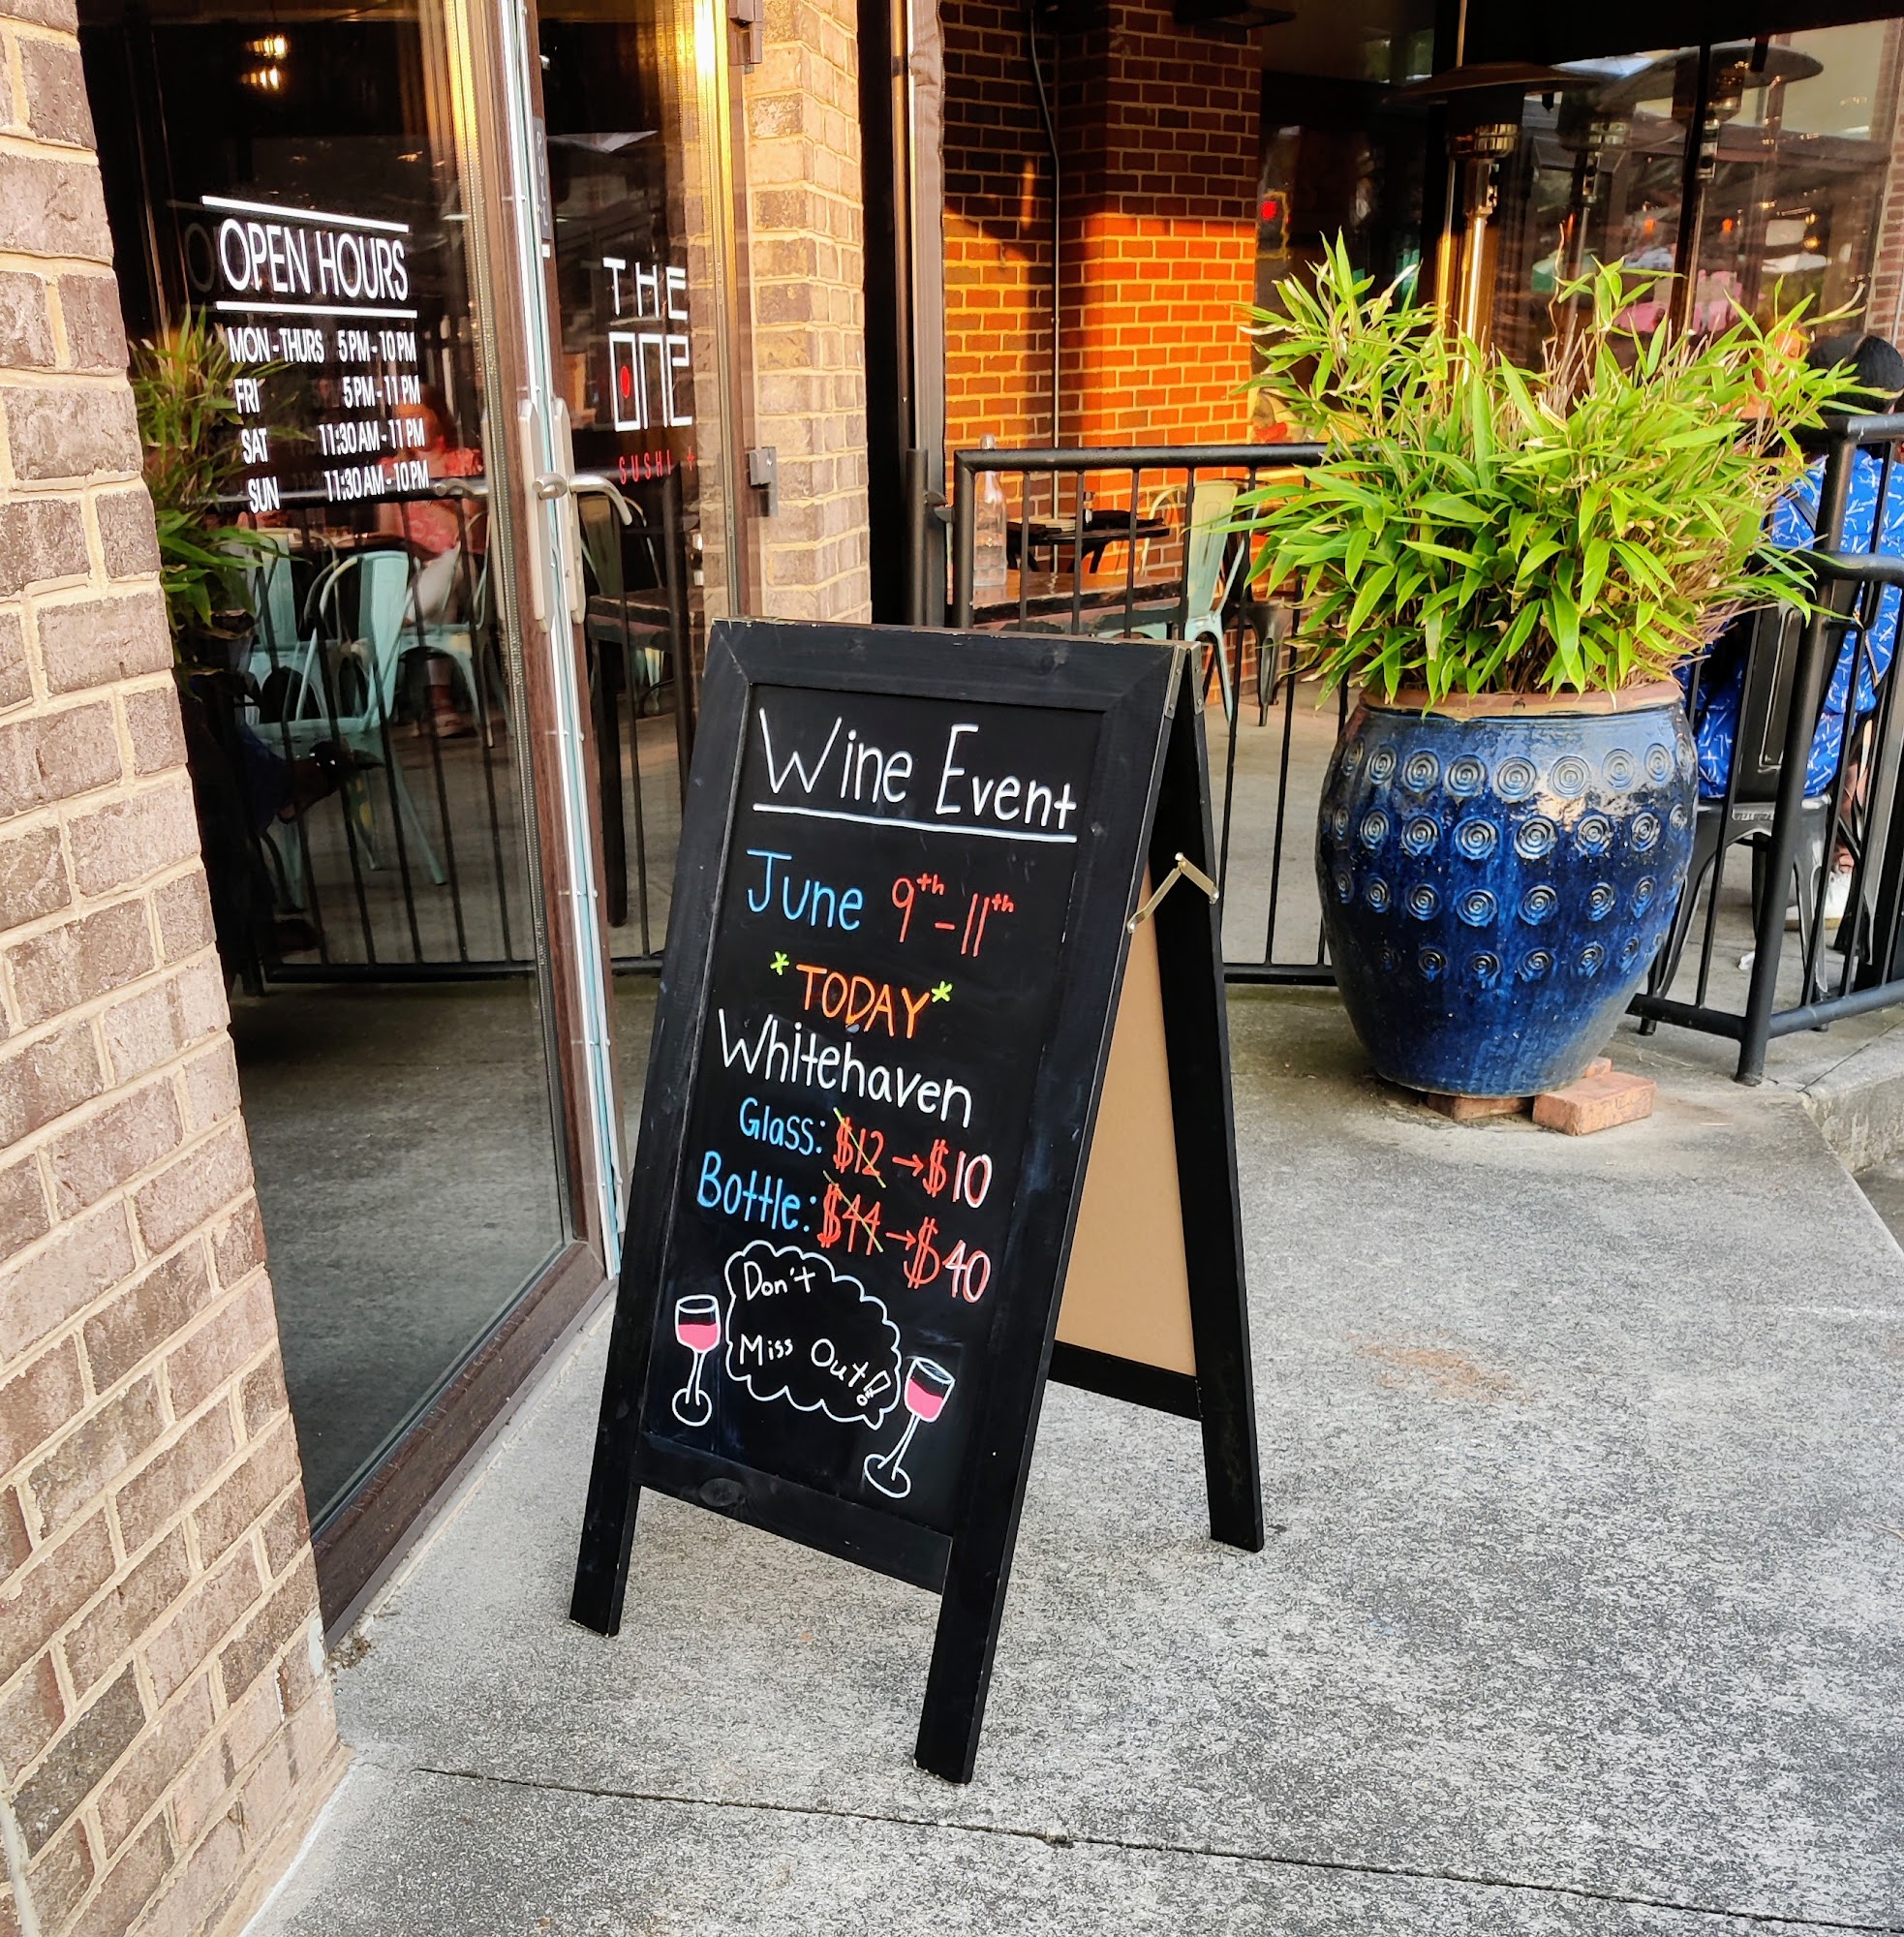 OPEN HOURS
MON - THURS 5 PM - 10 PM
FRI 5 PM - 11 PM
SAT 11:30 AM - 11 PM
SUN 11:30 AM - 10 PM
THE
ONE
SUSHI +
Wine Event
June 9th - 11th
*TODAY*
Whitehaven
Glass: $12 → $10
Bottle: $44 → $40
Don't
Miss Out!!